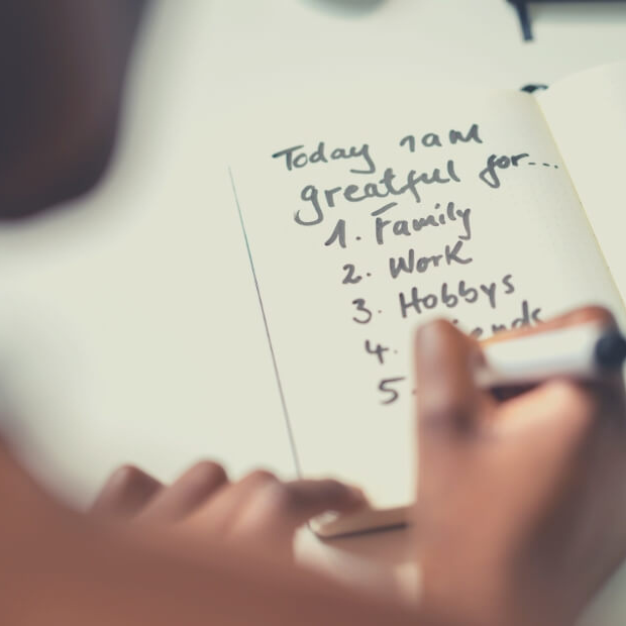 Today I am
greatful for...
1. Family
2. Work
3. Hobbys
4.
5.